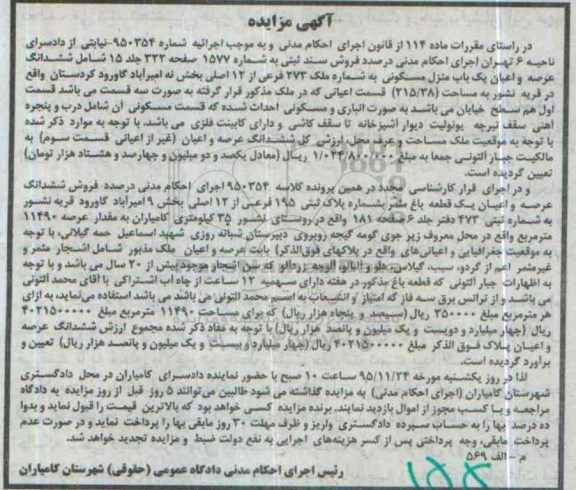 آگهی مزایده
در راستای مقررات ماده ۱۱۴ از قانون اجرای احکام مدنی و به موجب اجرائیه شماره ۹۵۰۳۵۴-نیابتی از دادسرای
ناحیه ۶ تهران اجرای احکام مدنی درصدد فروش سند ثبتی به شماره ۱۵۷۷ صفحه ۳۲۲ جلد ۱۵ شامل ششدانگ
عرصه و اعیان یک باب منزل مسکونی به شماره ملک ۲۷۳ فرعی از ۱۲ اصلی بخش نه امیرآباد گاورود کردستان واقع
در قریه نشور به مساحت (۲۱۵/۳۸) قسمت اعیانی که در ملک مذکور قرار گرفته به صورت سه قسمت می باشد قسمت
اول هم سطح خیابان می باشد به صورت انباری و مسکونی احداث شده که قسمت مسکونی آن شامل درب و پنجره
اهنی سقف تیرچه یونولیت دیوار اشپزخانه تا سقف کاشی و دارای کابینت فلزی می باشد، با توجه به موارد ذکر شده
با توجه به موقعیت ملک مساحت و عرف محل ارزش کل ششدانگ عرصه و اعیان (غیر از اعیانی قسمت سوم) به
مالکیت جبار آلتونی جمعا به مبلغ ۱/۰۲۴/۸۰۰/۰۰۰ ریال (معادل یکصد و دو میلیون و چهارصد و هشتاد هزار تومان)
تعیین گردیده است.
و در اجرای قرار کارشناسی مجدد در همین پرونده کلاسه ۹۵۰۳۵۴ اجرای احکام مدنی درصدد فروش ششدانگ
عرصه و اعیان یک قطعه باغ مثمر بشماره پلاک ثبتی ۱۹۵ فرعی از ۱۲ اصلی بخش ۹ امیرآباد گاورود قریه نشور
به شماره ثبتی ۴۷۳ دفتر جلد ۶ صفحه ۱۸۱ واقع در روستای نشور ۳۵ کیلومتری کامیاران به مقدار عرصه ۱۱۴۹۰
مترمربع واقع در محل معروف زیر جوی گومه گیجه روبروی دبیرستان شبانه روزی شهید اسماعیل حمه گیلانی، با توجه
به موقعیت جغرافیایی و اعیانی های واقع در پلاکهای فوق الذکر) بابت عرصه و اعیان ملک مذبور شامل اشجار مثمر و
غیرمثمر اعم از گردو، سیب، گیلاس، هلو و آلبالو، آلوچه، زردآلو که سن اشجار موجود بیش از ۲۰ سال می باشد و با توجه
به اظهارات جبار آلتونی که قطعه باغ مذکور در هفته دارای سهمیه ۱۲ ساعت از چاه آب اشتراکی با آقای محمد آلتونی
می باشد و از ترانس برق سه فاز که امتیاز و انشعاب به اسم محمد آلتونی می باشد می باشد استفاده می نماید، به ازای
هر مترمربع مبلغ ۳۵۰۰۰۰ ریال (سیصد و پنجاه هزار ریال) که برای مساحت ۱۱۴۹۰ مترمربع مبلغ ۴۰۲۱۵۰۰۰۰۰
ریال (چهار میلیارد و دویست و یک میلیون و پانصد هزار ریال) با توجه به مفاد ذکر شده مجموع ارزش ششدانگ عرصه
و اعیان پلاک فوق الذکر مبلغ ۴۰۲۱۵۰۰۰۰۰ ریال (چهار میلیارد و بیست و یک میلیون و پانصد هزار ریال) تعیین و
برآورد گردیده است.
لذا در روز یکشنبه مورخه ۹۵/۱۱/۲۴ ساعت ۱۰ صبح با حضور نماینده دادسرای کامیاران در محل دادگستری
شهرستان کامیاران (اجرای احکام مدنی) به مزایده گذاشته می شود طالبین می توانند ۵ روز قبل از روز مزایده به دادگاه
مراجعه و با کسب مجوز از اموال بازدید نمایند. برنده مزایده کسی خواهد بود که بالاترین قیمت را قبول نماید و بدوا
ده درصد بها را به حساب سپرده دادگستری واریز و ظرف مهلت ۳۰ روز مابقی بها را پرداخت نماید و در صورت عدم
پرداخت مابقی، وجه پرداختی پس از کسر هزینه های اجرایی به نفع دولت ضبط و مزایده تجدید خواهد شد.
م - الف ۵۶۹
رئیس اجرای احکام مدنی دادگاه عمومی (حقوقی) شهرستان کامیاران